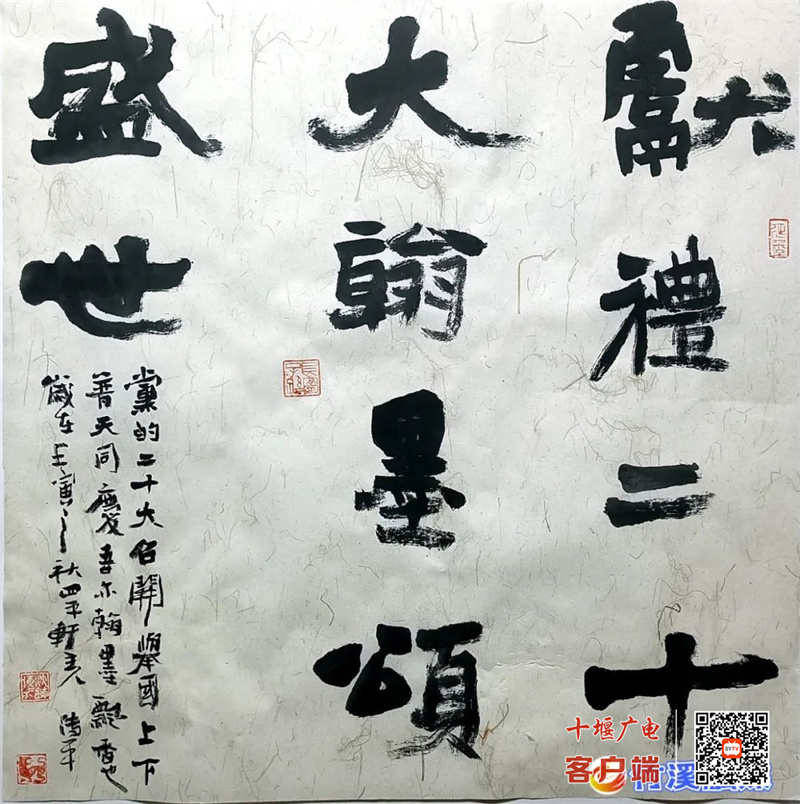 獻禮二十
大翰墨頌
盛世
黨的二十大召開舉國上下
普天同慶吾亦翰墨飄香也
歲在壬寅之秋四平軒主人
十堰广电
客户端
竹溪融媒
SYTV